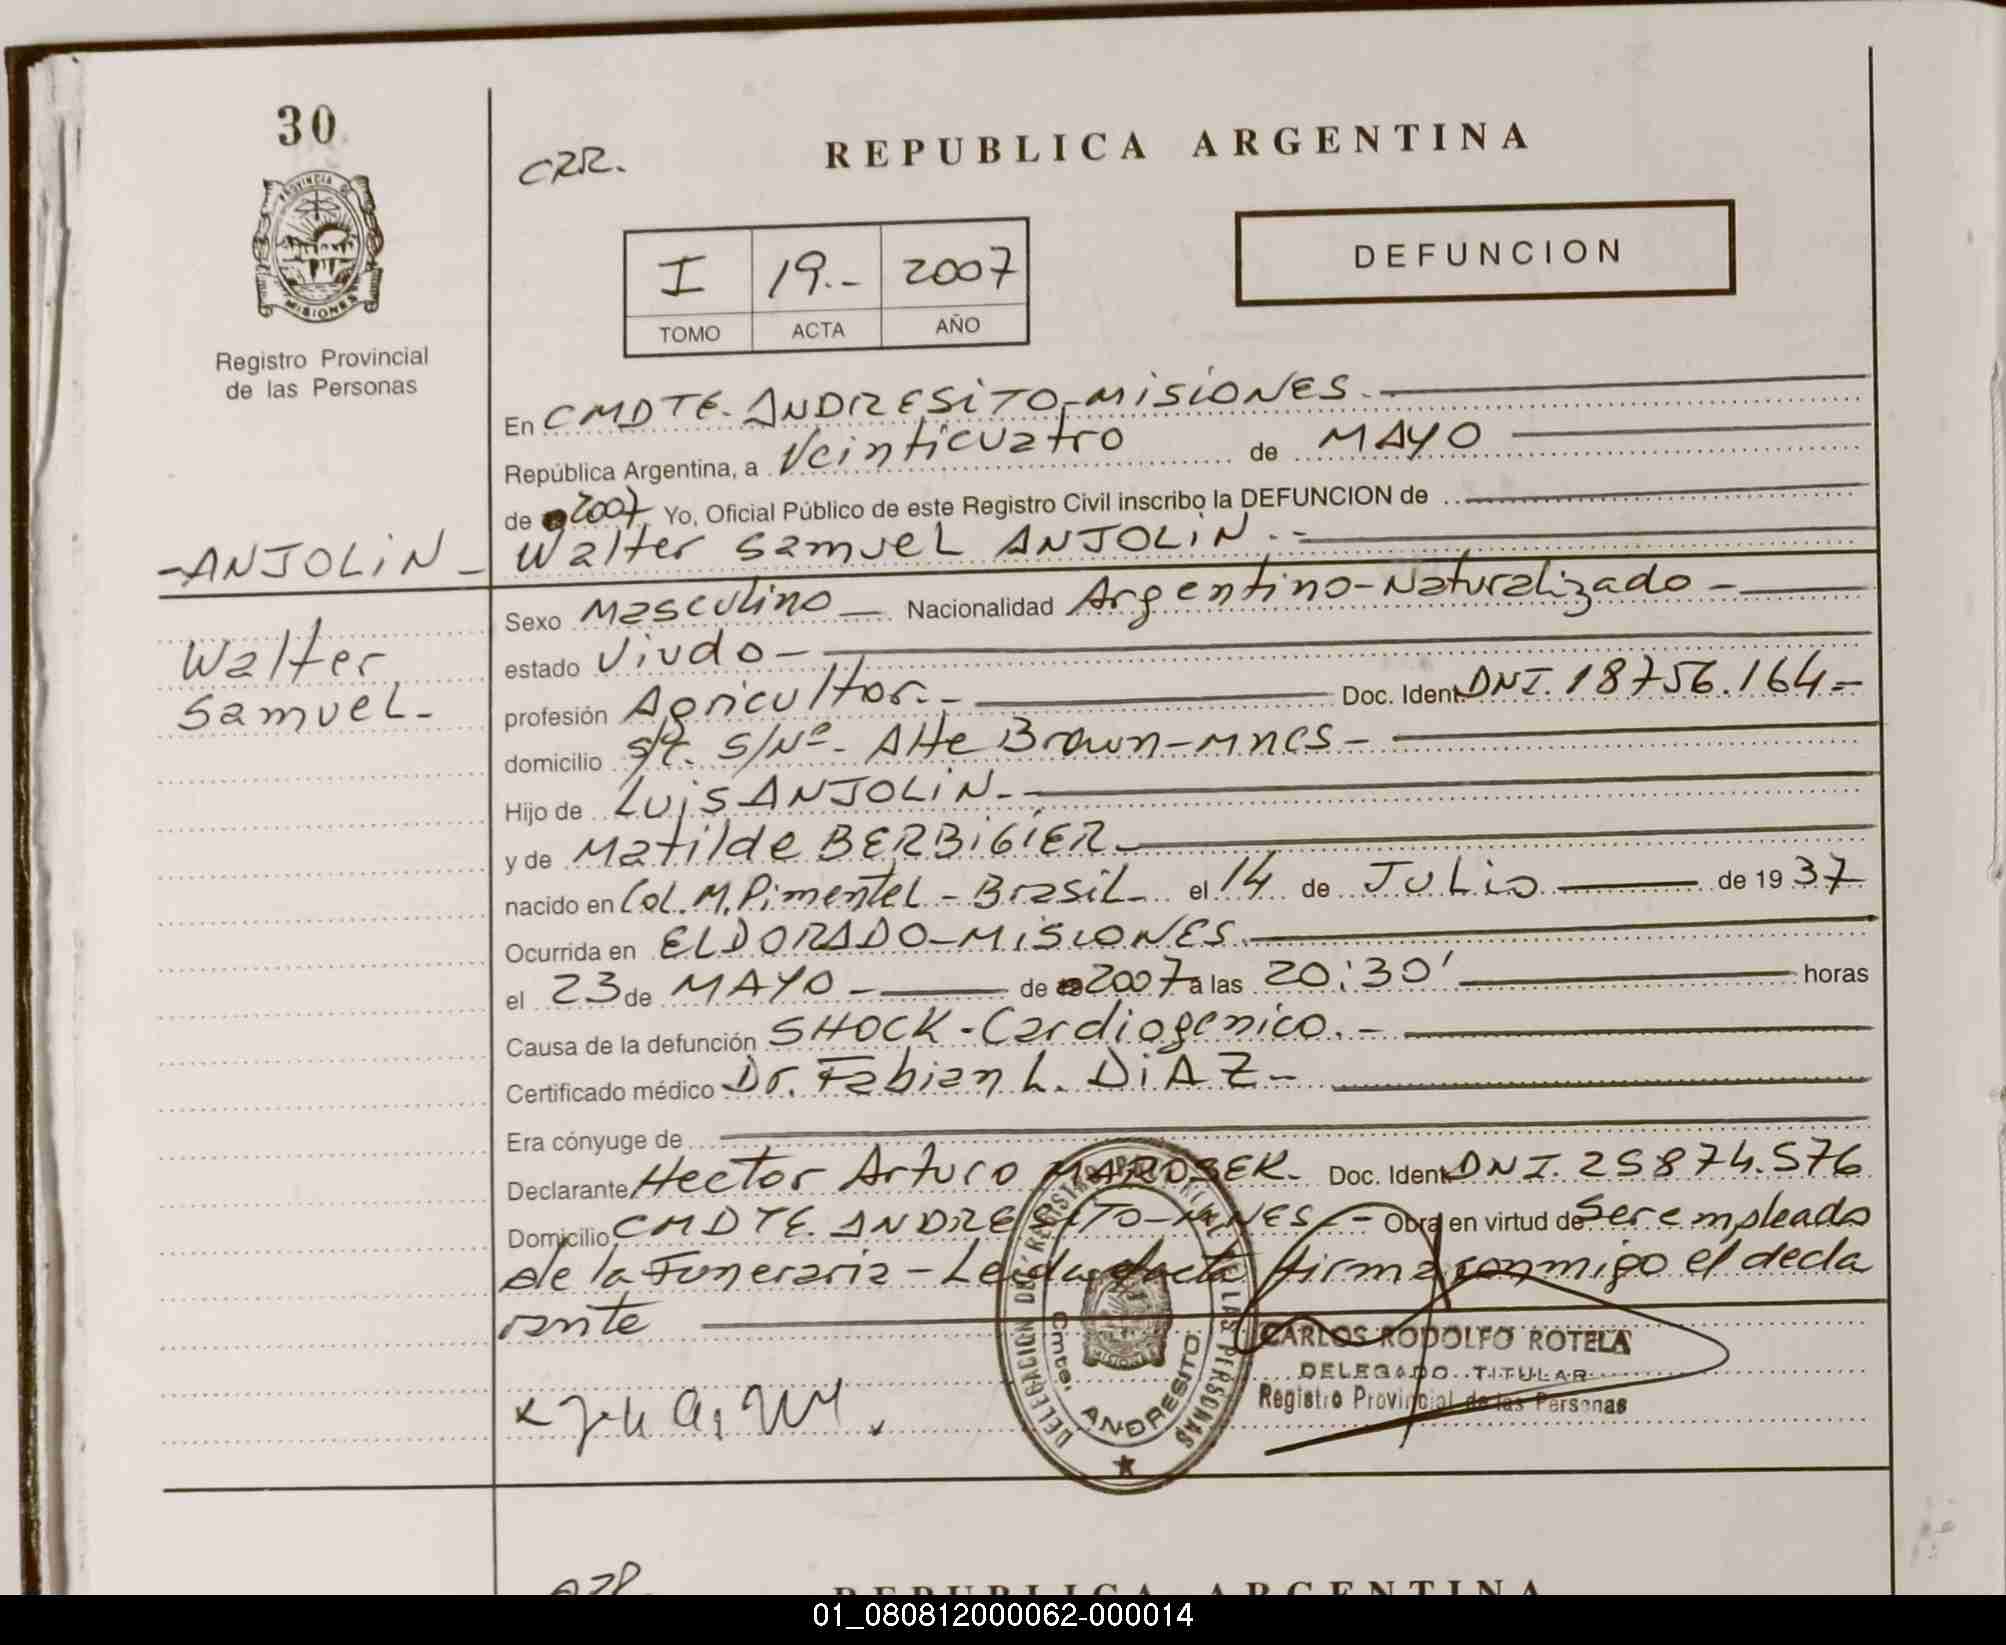 30
CRR.
REPUBLICA ARGENTINA
PROVINCIA DE
MISIONES
Registro Provincial
de las Personas
I 19.- 2007
TOMO ACTA AÑO
DEFUNCION
En CMDTE. ANDRESITO-MISIONES.
República Argentina, a Veinticuatro de MAYO
de 2007 Yo, Oficial Público de este Registro Civil inscribo la DEFUNCION de
-ANJOLIN- Walter Samuel ANJOLIN.-
Walter
Samuel-
Sexo Masculino Nacionalidad Argentino-Naturalizado-
estado Viudo-
profesión Agricultor.- Doc. Ident. DNI. 18756.164-
domicilio S/Nº- Alte Brown-Mnes-
Hijo de Luis ANJOLIN.-
y de Matilde BERBIGIER-
nacido en Col. M. Pimentel-Brasil- el 14 de JuLio de 19 37
Ocurrida en ELDORADO-MISIONES.
el 23 de MAYO- de 2007 a las 20:30' horas
Causa de la defunción SHOCK-Cardiogenico.-
Certificado médico Dr. Fabian L. DIAZ-
Era cónyuge de
Declarante Hector Arturo Doc. Ident. DNI. 25874.576
Domicilio CMDTE. ANDRESITO-MNES.- Obra en virtud de Ser empleado
de la Funeraria-Leida el acta firma conmigo el decla
rante
DELEGACION DEL REGISTRO PROVINCIAL DE LAS PERSONAS
Cmte. ANDRESITO
MISIONES
CARLOS RODOLFO ROTELA
DELEGADO TITULAR
Registro Provincial de las Personas
REPUBLICA ARGENTINA
01_080812000062-000014